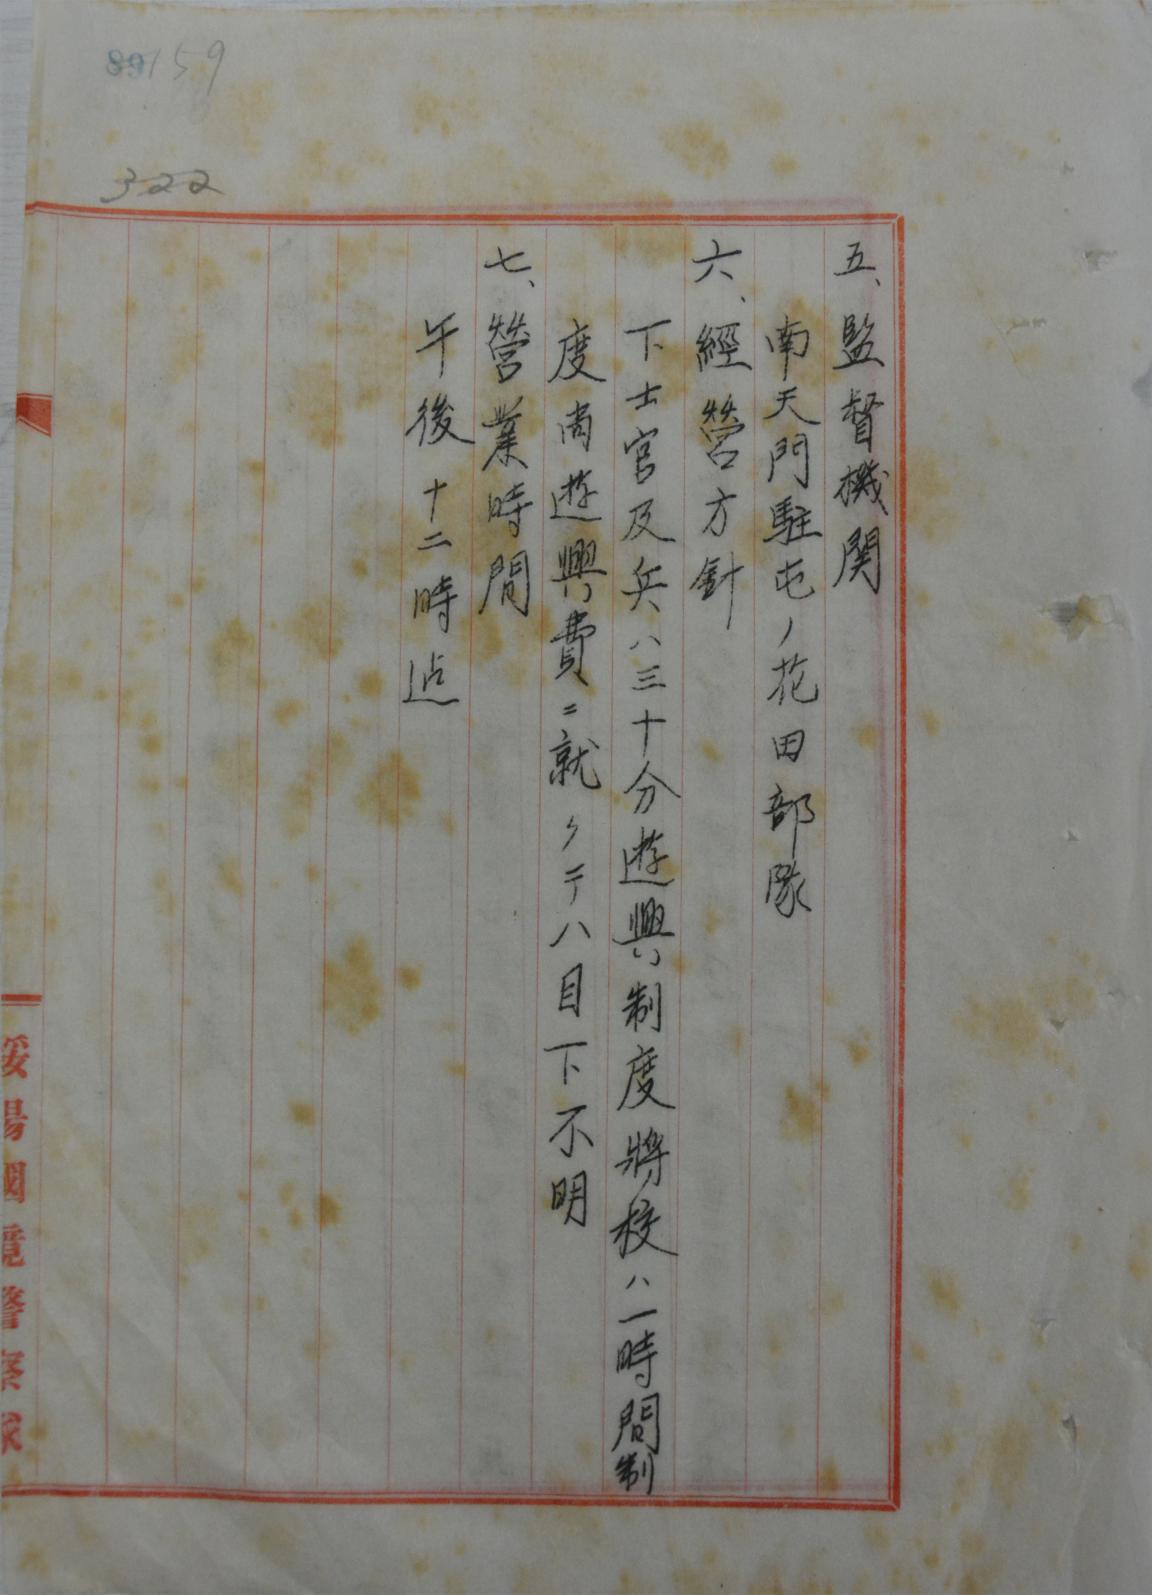 89159
322
五、監督機関
南天門駐屯ノ花田部隊
六、經營方針
下士官及兵ハ三十分遊興制度將校ハ一時間制
度尚遊興費ニ就クテハ目下不明
七、營業時間
午後十二時迠
綏陽國境警察隊